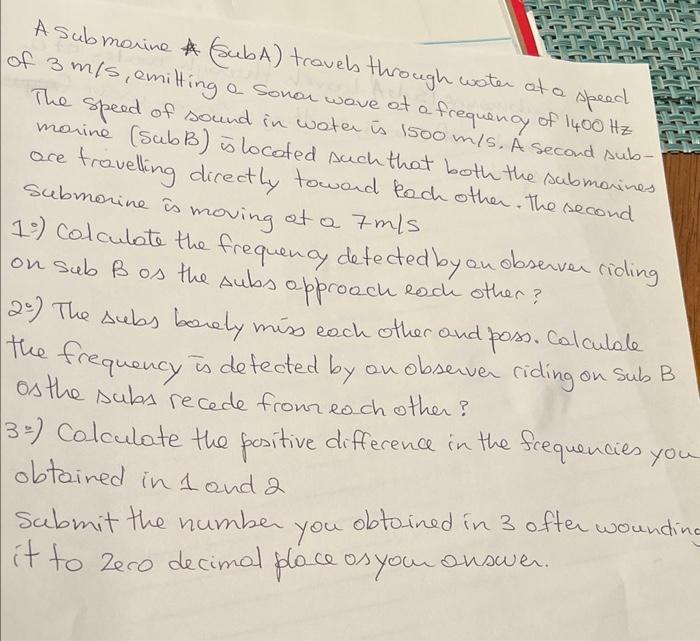 A Submarine A (SubA) travels through water at a speed
of 3 m/s, emitting a sonar wave at a frequency of 1400 Hz
The speed of sound in water is 1500 m/s. A second sub-
marine (SubB) is located such that both the submarines
are travelling directly toward each other. The second
submarine is moving at a 7m/s
1º) Calculate the frequency detected by an observer riding
on sub B as the subs approach each other?
2º) The subs barely miss each other and pass. Calculate
the frequency is detected by an observer riding on sub B
as the subs recede from each other?
3º) Calculate the positive difference in the frequencies you
obtained in 1 and 2
Submit the number you obtained in 3 after wounding
it to zero decimal place as your answer.